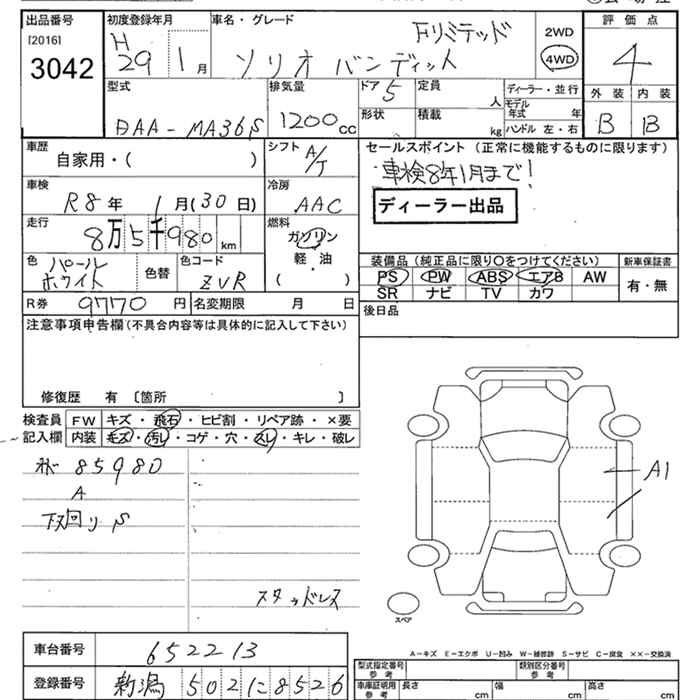 出品番号 初度登録年月 車名・グレード 評価点
[2016] H Fリミテッド 2WD 4
3042 29 1月 ソリオ バンディット 4WD
型式 排気量 ドア 5 定員 人 ディーラー・並行 外装 内装
DAA-MA36S 1200cc 形状 積載 kg モデル年式 年 B B
ハンドル 左・右
車歴 シフト セールスポイント(正常に機能するものに限ります)
自家用・( ) A/T 車検8年1月まで!
車検 冷房
R8年 1月(30日) AAC ディーラー出品
走行 燃料
8万5千980km ガソリン
色 パールホワイト 色替 色コード ZVR 軽・油 装備品(純正品に限り○をつけてください) 新車保証書
( ) PS PW ABS エアB AW 有・無
R券 9770円 名変期限 月 日 SR ナビ TV カワ
注意事項申告欄(不具合内容等は具体的に記入して下さい) 後日品
修復歴 有 〔箇所 〕
検査員 FW キズ・飛石・ヒビ割・リペア跡・×要
記入欄 内装 キズ・汚レ・コゲ・穴・スレ・キレ・破レ
85980 A1
A
下回りS
スタッドレス
スペア
A-キズ E-エクボ U-凹み W-補修跡 S-サビ C-腐食 ××-交換済
車台番号 652213 型式指定番号 参考 類別区分番号 参考
登録番号 新潟 502に8526 車庫証明用 参考 長さ cm 幅 cm 高さ cm